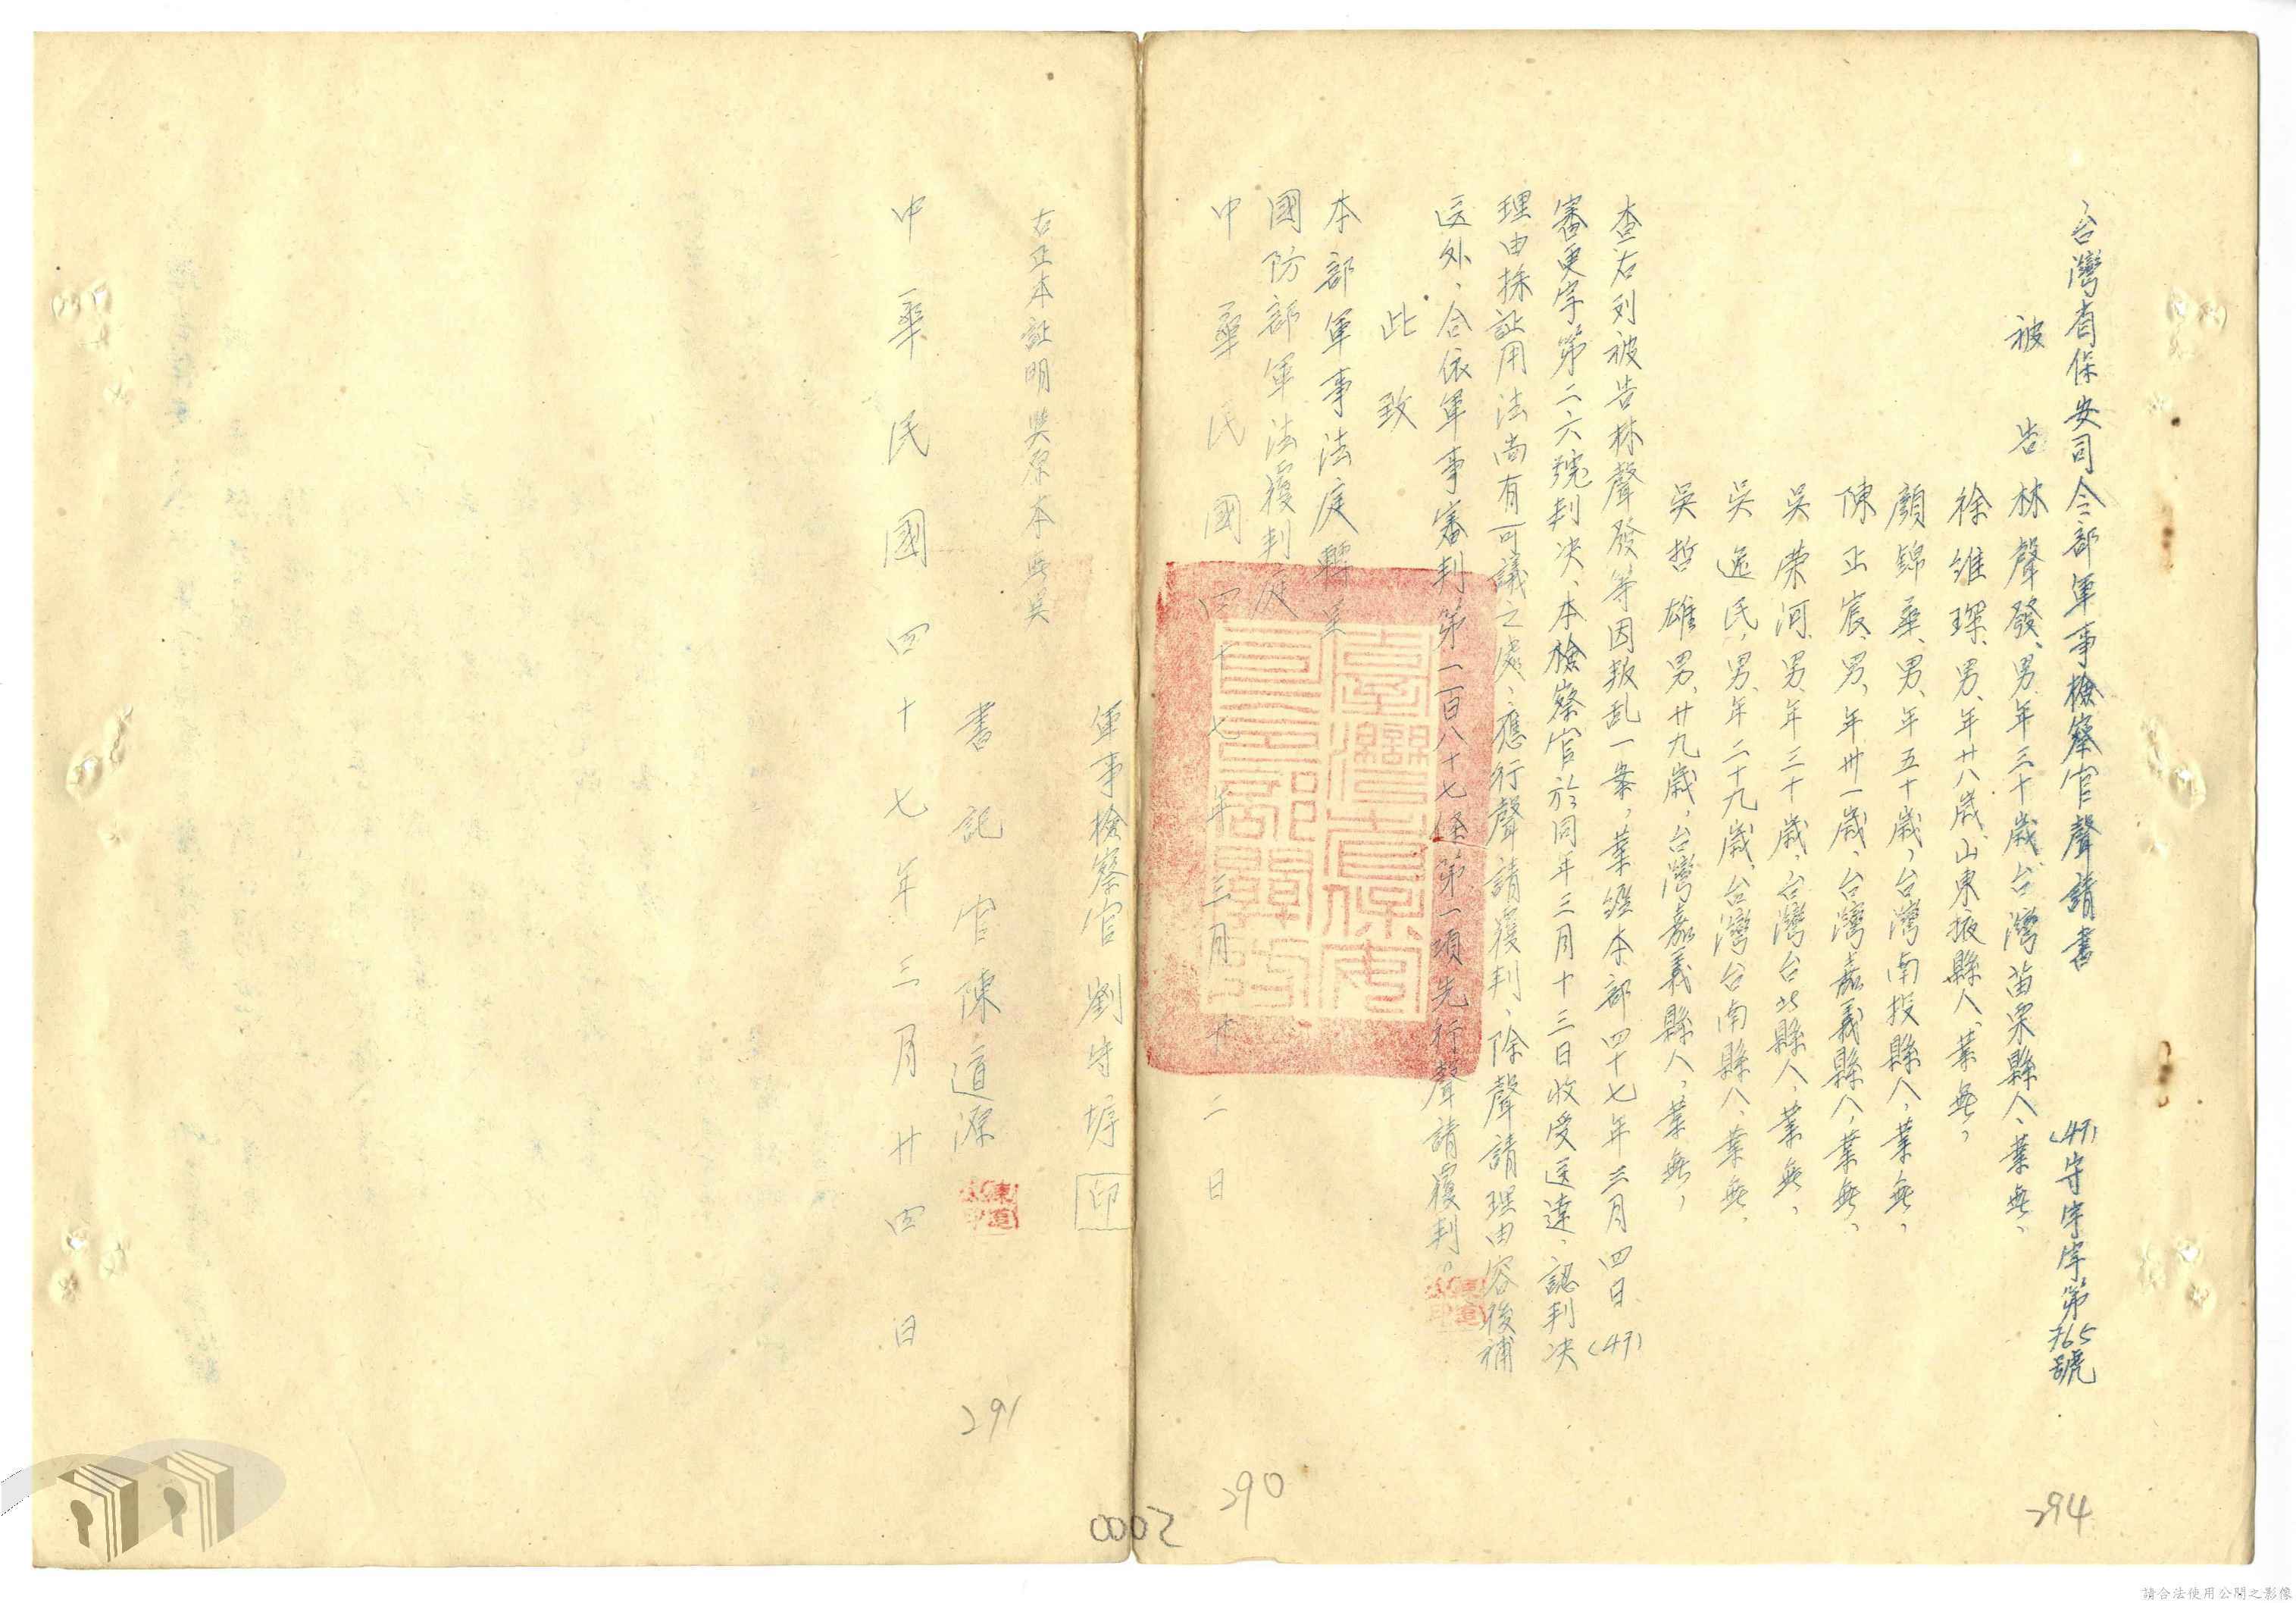 台灣省保安司令部軍事檢察官聲請書 (47)守字第765號
被告 林聲發、男、年三十歲、台灣苗栗縣人、業無、
徐維琛、男、年廿八歲、山東掖縣人、業無、
顏錦華、男、年五十歲、台灣南投縣人、業無、
陳正宸、男、年卅一歲、台灣嘉義縣人、業無、
吳荣河、男、年三十歲、台灣台北縣人、業無、
吳逸民、男、年二十九歲、台灣台南縣人、業無、
吳哲雄、男、廿九歲、台灣嘉義縣人、業無、
查右列被告林聲發等因叛乱一案，業經本部四十七年三月四日(47)
審更字第二六號判决、本檢察官於同年三月十三日收受送達，認判决
理由採証用法尚有可議之處，應行聲請覆判、除聲請理由容後補
送外，合依軍事審判第一百八十七條第一項先行聲請覆判。
此致
本部軍事法庭轉呈
國防部軍法覆判庭
中華民國四十七年三月廿二日
軍事檢察官 劉守塝 印
右正本証明與原本無異
書記官陳道源
中華民國四十七年三月廿四日
291
290
294
0002
請合法使用公開之影像